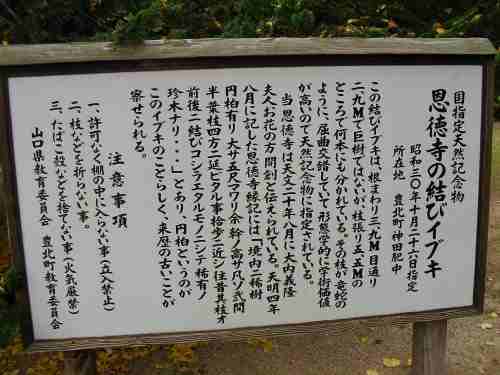 国指定天然記念物
恩徳寺の結びイブキ
昭和三〇年十月二十六日指定
所在地　豊北町神田肥中
この結びイブキは、根まわり二・九M目通り
二・九Mで巨樹ではないが、枝張り五・五Mの
ところで何本にもわかれている。その枝が竜蛇の
ように、屈曲交錯をしていて形態学的に学術価値
が高いので天然記念物に指定されている。
当恩徳寺は天文二十年八月に大内義隆
夫人お花の方開創と伝えられている。天明四年
八月に記した恩徳寺縁記には「境内ニ稀樹
円柏有リ大サ五尺マワリ余幹ノ高サ凡ソ弐間
半葉枝四方ニ延ビタル事拾歩ニ近シ往昔其枝オ
前後ニ結びコンラエタルモノニシテ稀有ノ
珍木ナリ・・・」とあり、円柏というのが
このイブキのことらしく、来歴の古いことが
察せられる。
注意事項
一、許可なく棚の中に入らない事（立入禁止）
二、枝などを折らない事。
三、たばこ殻などを捨てない事（火気厳禁）
山口県教育委員会　豊北町教育委員会